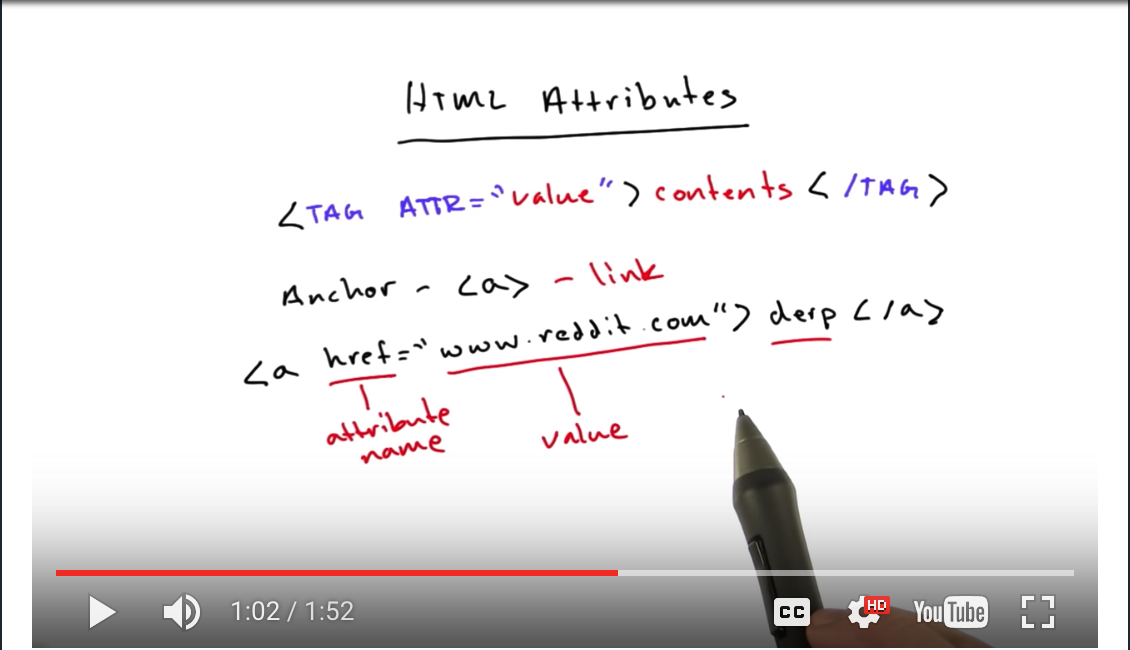 HTML Attributes
<TAG ATTR="value"> contents </TAG>
Anchor - <a> - link
<a href="www.reddit.com"> derp </a>
attribute
name
value
1:02 / 1:52
CC
HD
YouTube